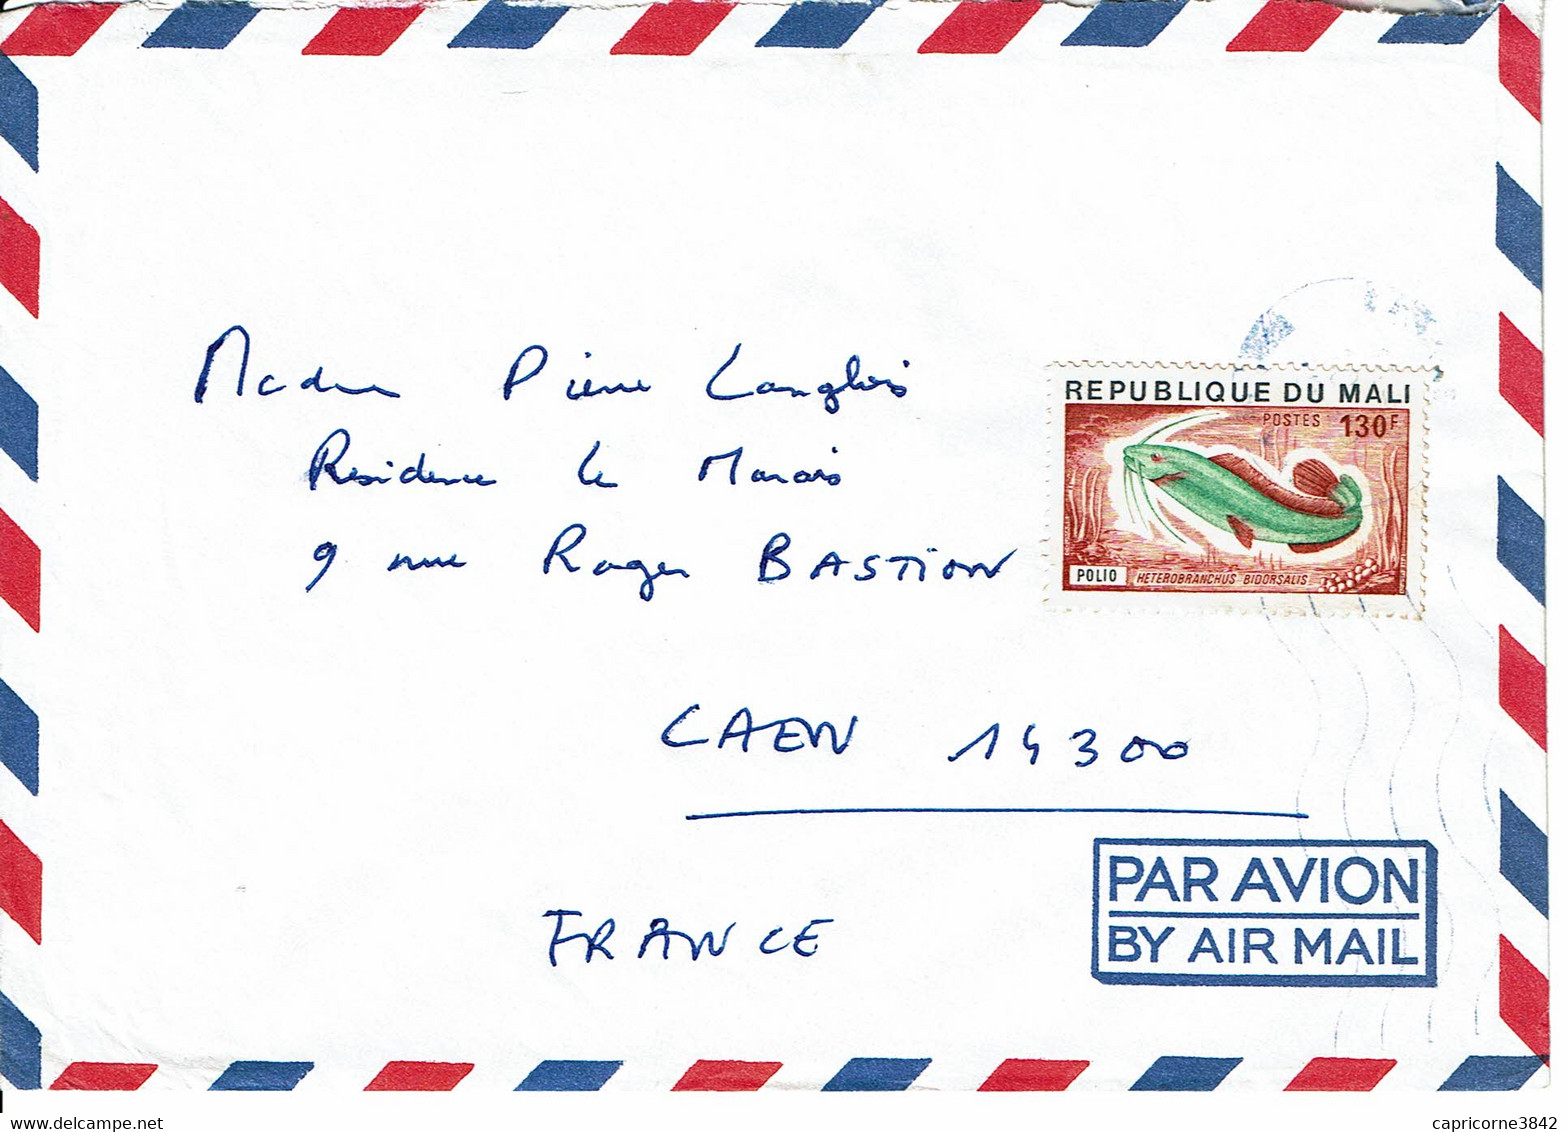 Madame Pierre Langlois
Résidence le Marais
9 rue Roger BASTION
CAEN 14300
FRANCE
REPUBLIQUE DU MALI
POSTES 130F
POLIO HETEROBRANCHUS BIDORSALIS
PAR AVION
BY AIR MAIL
capricorne3842